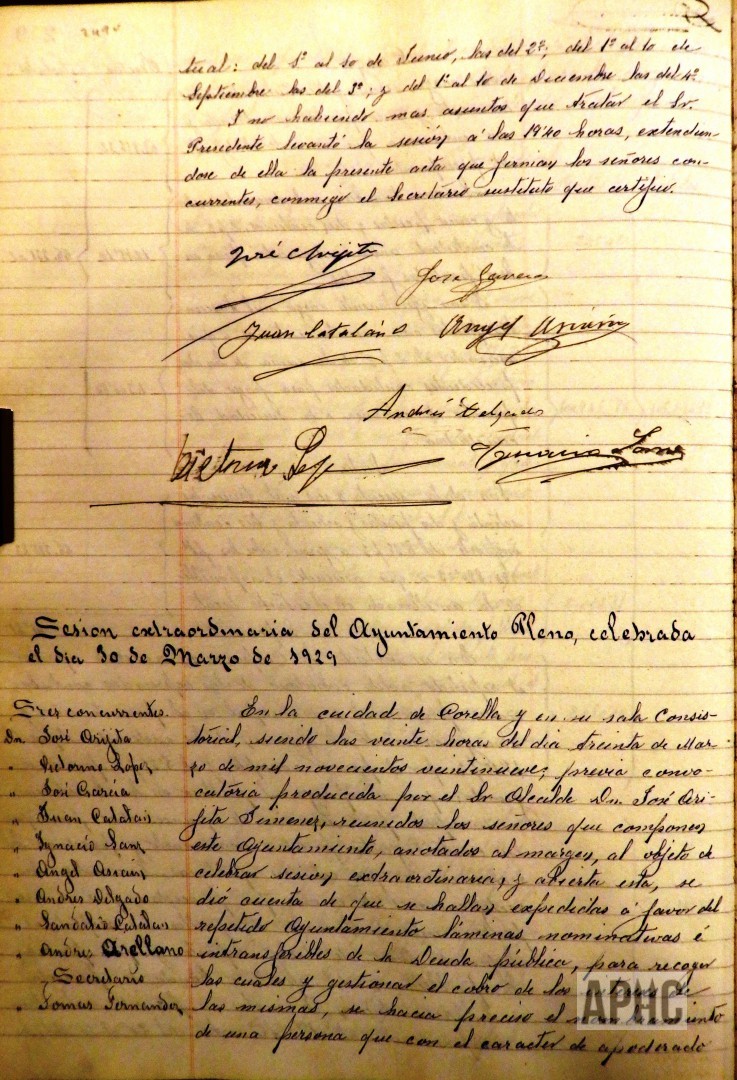 tual: del 1º al 10 de Junio, las del 2º; del 1º al 10 de
Septiembre las del 3º; y del 1º al 10 de Diciembre las del 4º.
Y no habiendo mas asuntos que tratar el Sr.
Presidente levantó la sesión á las 19'40 horas, extendien-
dose de ella la presente acta que firman los señores con-
currentes, conmigo el Secretario sustituto que certifico.
José Arijita
José Garcia
Juan Catalán
Angel
Andrés Delgado
Victorino
Ignacio Sanz
Sesion extraordinaria del Ayuntamiento Pleno, celebrada
el dia 30 de Marzo de 1929
Sres concurrentes
Dn José Arijita
" Victorino López
" José Garcia
" Juan Catalan
" Ygnacio Sanz
" Angel
" Andres Delgado
" Sandalio Catalan
" Andres Arellano
Secretario
" Tomas Fernandez
En la cuidad de Corella y en su sala Consis-
torial, siendo las veinte horas del dia treinta de Mar-
zo de mil novecientos veintinueve; previa convo-
catoria producida por el Sr Alcalde Dn José Ari-
jita Jimenez, reunidos los señores que componen
este Ayuntamiento, anotados al margen, al objeto de
celebrar sesion extraordinaria, y abierta esta, se
dió cuenta de que se hallan expedidas á favor del
repetido Ayuntamiento láminas nominativas é
intransferibles de la Deuda pública, para recoger
las cuales y gestionar el cobro de los de
las mismas, se hacia preciso el nombramiento
de una persona que con el caracter de apoderado
APHC